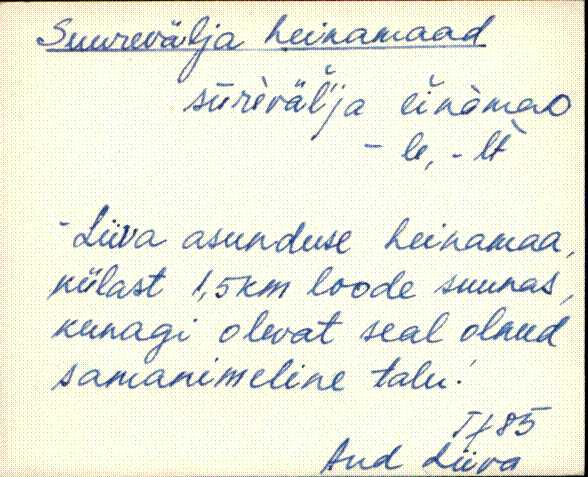 Suurevälja heinamaad
sūrèväl̆'ja einàmaο
- le, - lt
- Liiva asunduse heinamaa,
külast 1,5km loode suunas,
kunagi olevat seal olnud
samanimeline talu.
85
And Liiva